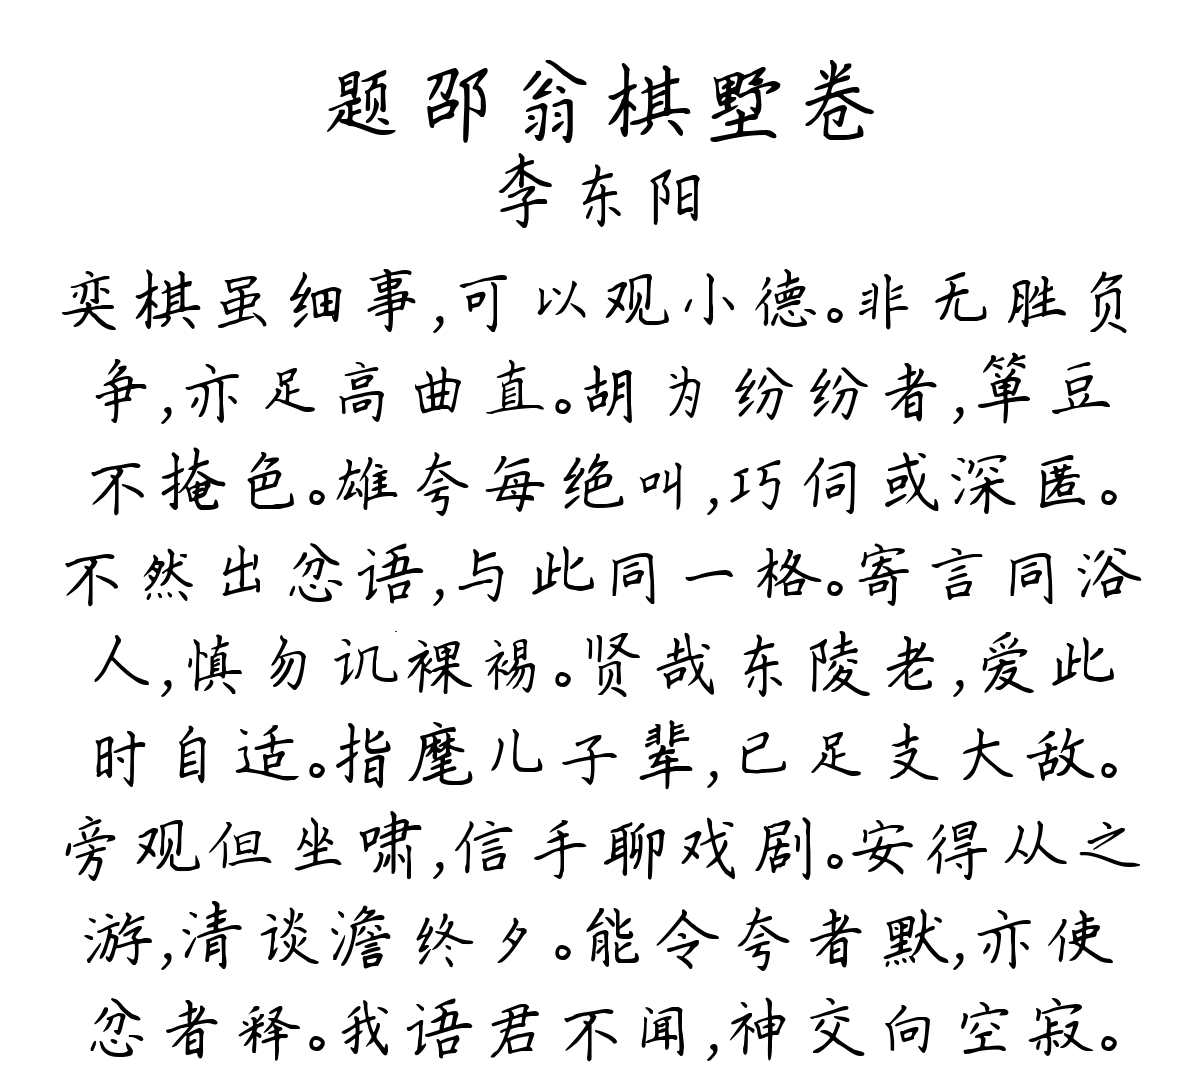 题邵翁棋墅卷
李东阳
奕棋虽细事,可以观小德。非无胜负
争,亦足高曲直。胡为纷纷者,箪豆
不掩色。雄夸每绝叫,巧伺或深匿。
不然出忿语,与此同一格。寄言同浴
人,慎勿讥裸裼。贤哉东陵老,爱此
时自适。指麾儿子辈,已足支大敌。
旁观但坐啸,信手聊戏剧。安得从之
游,清谈澹终夕。能令夸者默,亦使
忿者释。我语君不闻,神交向空寂。